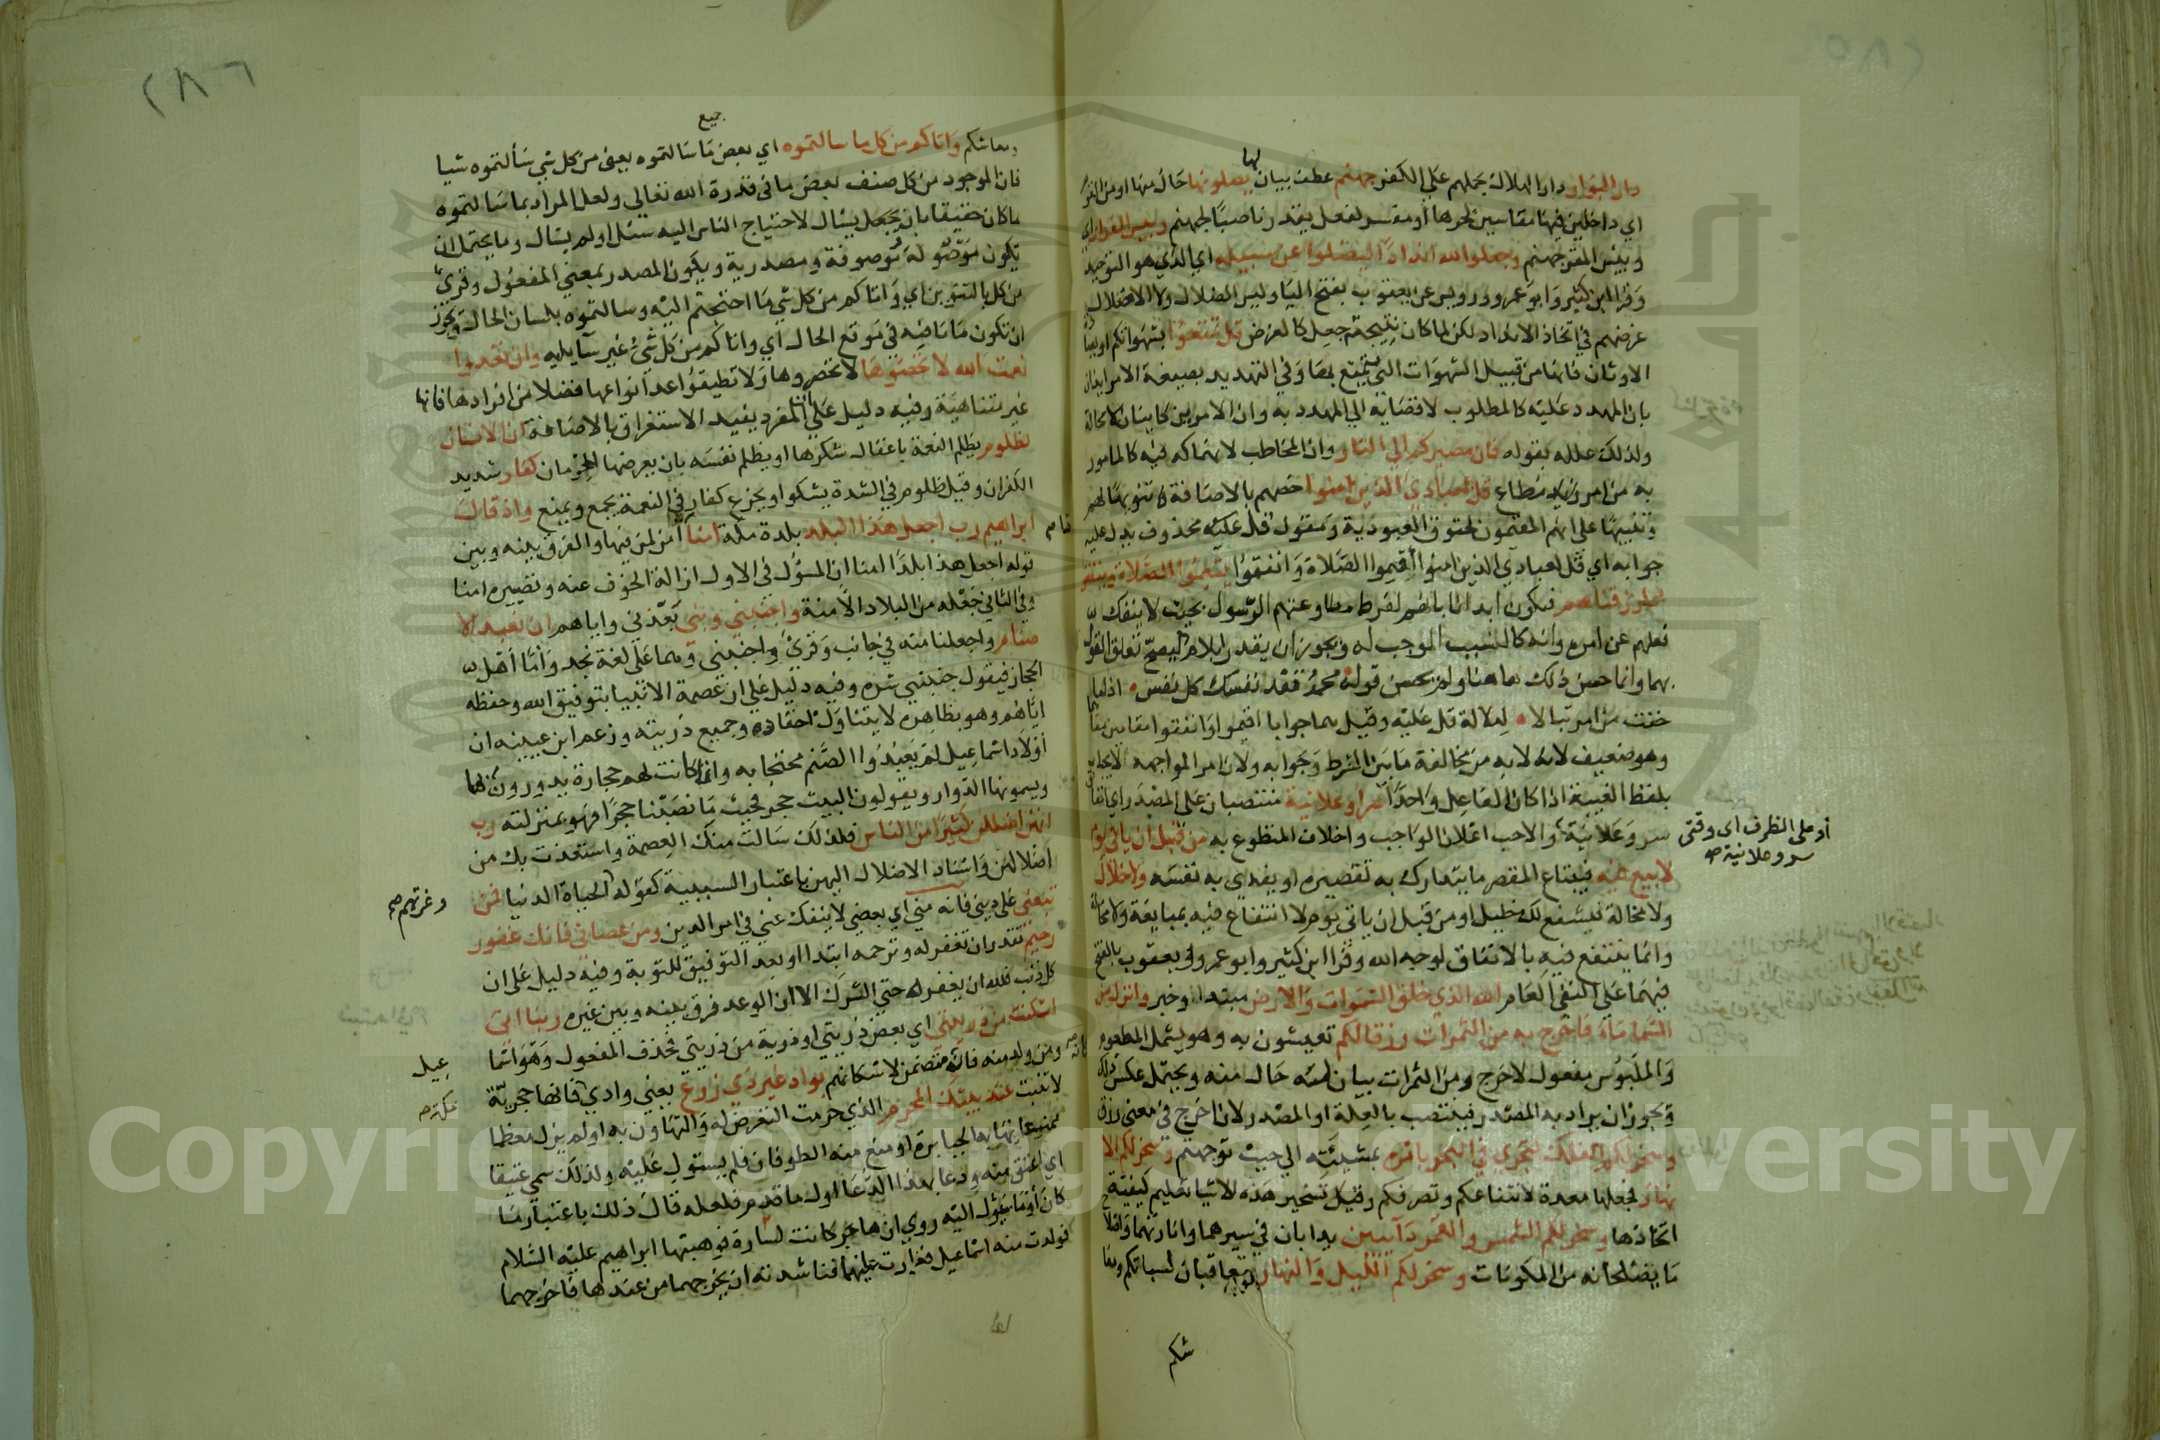 دار البوار دار الهلاك بحملهم على الكفر جهنم عطف بيان لها يصلونها حال منها او من القوم
اي داخلين فيها مقاسين لحرها او مفسر لفعل يقدر ناصبا لجهنم وبئس القرار اي
وبئس المقر جهنم وجعلوا لله اندادا ليضلوا عن سبيله اي الذي هو التوحيد
وقرا ابن كثير وابو عمرو ورويس عن يعقوب بفتح اليا وليس الضلال ولا الاضلال
غرضهم في اتخاذ الانداد لكن لما كان نتيجته جعل كالغرض قل تمتعوا بشهواتكم او بعبادة
الاوثان فانها من قبيل الشهوات التي يتمتع بها وفي التهديد بصيغة الامر ايذان
بان المهدد عليه كالمطلوب لافضائه الى المهدد به وان الامرين كاينان لا محالة
ولذلك علله بقوله فان مصيركم الى النار وان المخاطب لانهماكه فيه كالمامور
به من امر مطاع قل لعبادي الذين امنوا خصهم بالاضافة تنويها لهم
وتنبيها على انهم المقيمون لحقوق العبودية ومقول قل عليه محذوف يدل عليه
جوابه اي قل لعبادي الذين امنوا اقيموا الصلاة وانفقوا يقيموا الصلاة وينفقوا
مما رزقناهم فيكون ايذانا بانهم لفرط مطاوعتهم الرسول بحيث لا ينفك
فعلهم عن امره وانه كالسبب الموجب له ويجوز ان يقدر بلام ليصح تعلق القول
بهما وانما حسن ذلك هاهنا ولم يحسن قوله محمد تفد نفسك كل نفس اذا ما
خفت من امر تبالا لدلالة قل عليه وقيل هما جوابا اقيموا وانفقوا مقامين مقامهما
وهو ضعيف لانه لابد من مخالفة ما بين الشرط وجوابه ولان امر المواجهه لا يجاب
بلفظ الغيبة اذا كان الفاعل واحدا سرا وعلانية منتصبان على المصدر اي انفاق
سر وعلانية والاحب اعلان الواجب واخفا المتطوع به من قبل ان ياتي يوم
او على الظرف اي وقتي
سر وعلانية صح
لا بيع فيه فيبتاع المقصر ما يتدارك به تقصيره او يفدي به نفسه ولا خلال
ولا مخالة فيشفع لك خليل او من قبل ان ياتي يوم لا انتفاع فيه بمبايعة ولا مخالة
وانما ينتفع فيه بالانفاق لوجه الله وقرا ابن كثير وابو عمرو ويعقوب بالفتح
فيهما على النفي العام الله الذي خلق السموات والارض مبتدا وخبر وانزل من
السماء ماء فاخرج به من الثمرات رزقا لكم تعيشون به وهو يشمل المطعوم
والملبوس مفعول لاخرج ومن الثمرات بيان له حال منه ويحتمل عكس ذلك
ويجوز ان يراد به المصدر فينتصب بالعلة او المصدر لان اخرج في معنى رزق
وسخر لكم الفلك لتجري في البحر بامره بمشيئته الى حيث توجهتم وسخر لكم الا
نهار فجعلها معدة لانتفاعكم وتصرفكم وقيل تسخير هذه الاشيا تعليم كيفية
اتخاذها وسخر لكم الشمس والقمر دائبين يدابان في سيرهما وانارتهما واصلاح
ما يصلحانه من المكونات وسخر لكم الليل والنهار يتعاقبان لسباتكم ومعا
شكم
٢٨٦
ومعاشكم واتاكم من كل ما سالتموه اي بعض جميع ما سالتموه يعني من كل شي سألتموه شيا
فان الموجود من كل صنف بعض ما في قدرة الله تعالى ولعل المراد بما سالتموه
ما كان حقيقا بان يسال لاحتياج الناس اليه سئل او لم يسال وما يحتمل ان
يكون موصولة وموصوفة ومصدرية ويكون المصدر بمعنى المفعول وقرئ
من كل بالتنوين اي واتاكم من كل شي ما احتجتم اليه وسالتموه بلسان الحال ويجوز
ان تكون ما نافيه في موقع الحال اي واتاكم من كل شئ غير سآيليه وان تعدوا
نعمت الله لا تحصوها لا تحصروها ولا تطيقوا عد انواعها فضلا من افرادها فانها
غير متناهية وفيه دليل على ان المفرد يفيد الاستغراق بالاضافة ان الانسان
لظلوم يظلم النعمة باغفال شكرها او يظلم نفسه بان يعرضها للحرمان كفار شديد
الكفران وقيل ظلوم في الشدة يشكو ويجزع كفار في النعمة يجمع ويمنع واذ قال
ابراهيم رب اجعل هذا البلد بلدة مكة امنا ذا امن لمن فيها والفرق بينه وبين
قوله اجعل هذا بلدا امنا ان المسؤل في الاول ازالة الخوف عنه وتصييره امنا
وفي الثاني جعله من البلاد الآمنة واجنبني وبني بعدني واياهم ان نعبد الا
صنام واجعلنا منه في جانب وقرئ واجنبني وهما على لغة نجد واما اهل
الحجاز فيقول جنبني شره وفيه دليل على ان عصمة الانبيا بتوفيق الله وحفظه
اياهم وهو بظاهره لا يتناول احفاده وجميع ذريته وزعم ابن عيينه ان
اولاد اسماعيل لم يعبدوا الصنم محتجا به وانما كانت لهم حجارة يدورون بها
ويسمونها الدوار ويقولون البيت حجر فحيث ما نصبنا حجرا فهو بمنزلته رب
انهن اضللن كثيرا من الناس فلذلك سالت منك العصمة واستعذت بك من
اضلالهن واسناد الاضلال اليهن باعتبار السببية كقوله الحياة الدنيا فمن
وغرتهم صح
تبعني على ديني فانه مني اي بعضي لا ينفك عني في امر الدين ومن عصاني فانك غفور
رحيم تقدر ان تغفر له وترحمه ابتدا او بعد التوفيق للتوبة وفيه دليل على ان
كل ذنب فلله ان يغفره حتى الشرك الا ان الوعد فرق بينه وبين غيره ربنا اني
اسكنت من ذريتي اي بعض ذريتي او ذرية من ذريتي فحذف المفعول وهو اسما
عيل
ومن ولد منه فان متضمن لاسكانهم بواد غير ذي زرع يعني وادي فانها حجرية
مكة صح
لا تنبت عند بيتك المحرم الذي حرمت التعرض له والتهاون به او لم يزل معظما
ممنعا يهابه الجبابرة او منع منه الطوفان فلم يستول عليه ولذلك سمي عتيقا
اي اعتق منه ودعا بهذا الدعا اول ما قدم فلعله قال ذلك باعتبار ما
كان او ما سيؤل اليه روي ان هاجر كانت لسارة فوهبتها ابراهيم عليه السلام
فولدت منه اسماعيل فغارت عليهما فناشدته ان يخرجهما من عندها فاخرجهما
Copyright © King Saud University